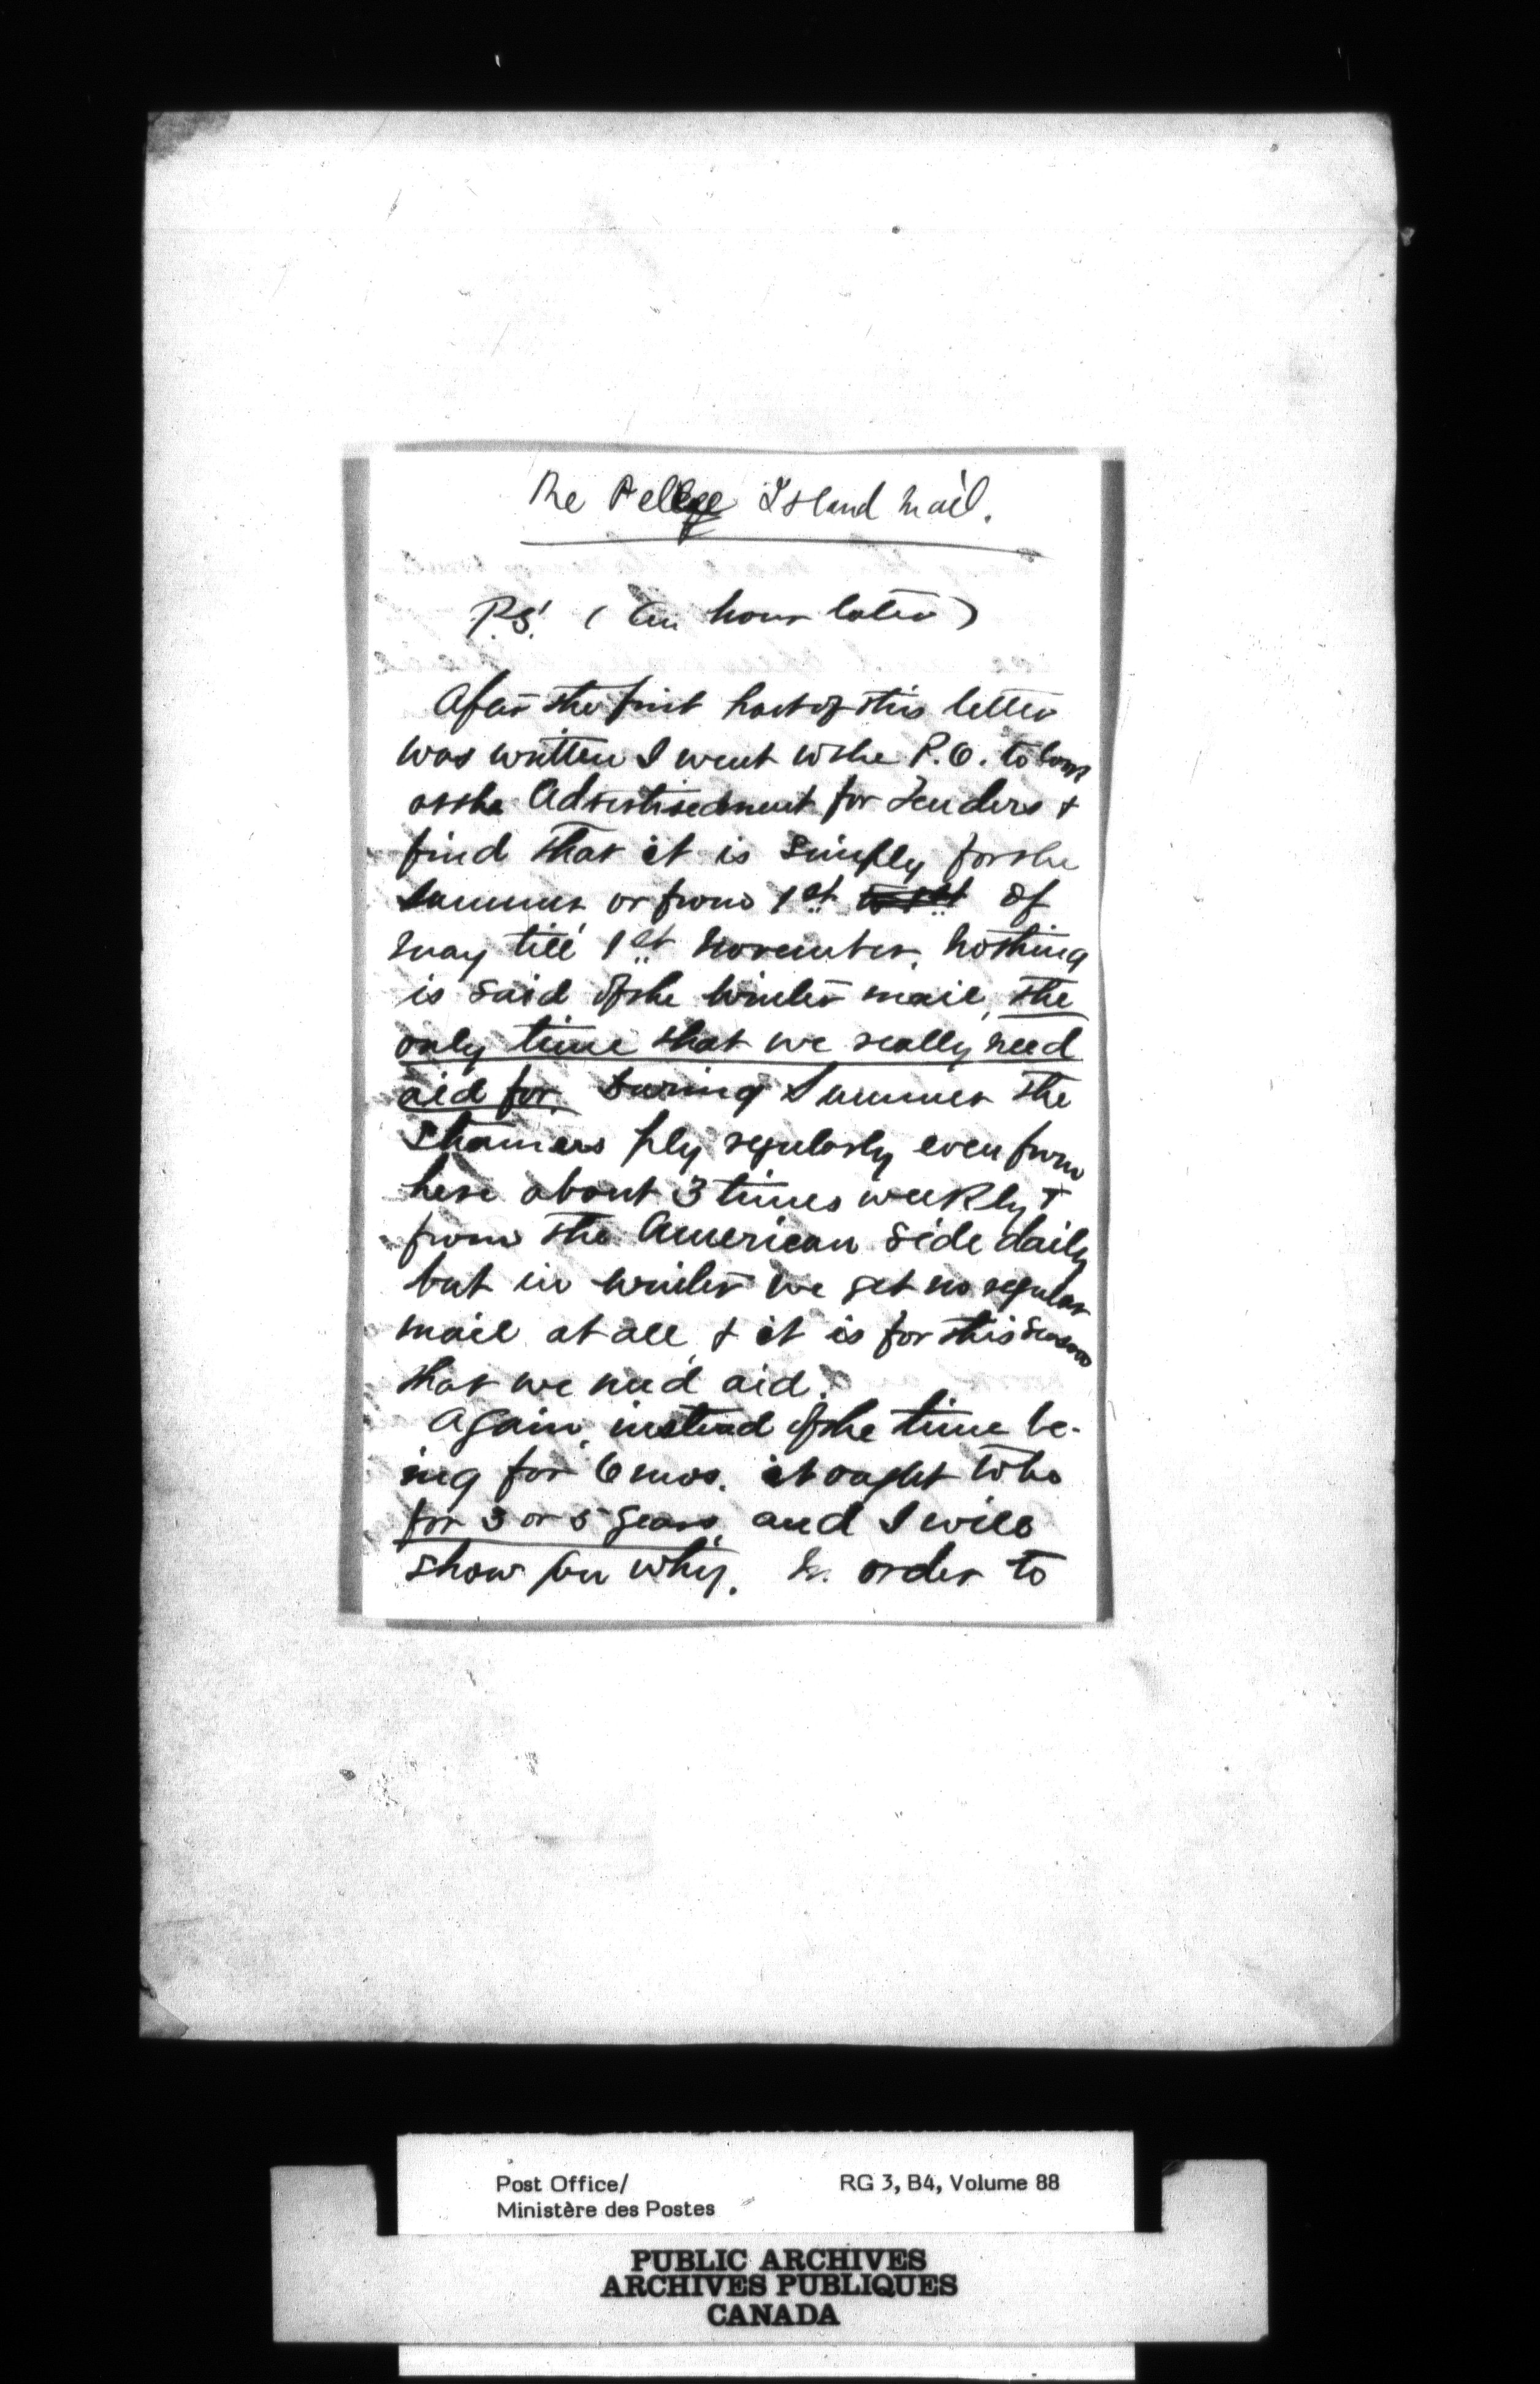 Re Pelee Island Mail.
P.S! (An hour later)
After the first part of this letter
was written I went to the P.O. to look
at the Advertisedment for Tenders &
find that it is simply for the
Summer or from 1st to 1st of
May till 1st November. Nothing
is said of the Winter mail, the
only time that we really need
aid for. During Summer the
Steamers ply regularly even from
here about 3 times weekly &
from the American side daily
but in winter we get no regular
mail at all, & it is for this season
that we need aid.
Again, instead of the time be-
ing for 6 mos. it ought to be
for 3 or 5 years, and I will
show you why. In order to
Post Office/ RG 3, B4, Volume 88
Ministère des Postes
PUBLIC ARCHIVES
ARCHIVES PUBLIQUES
CANADA